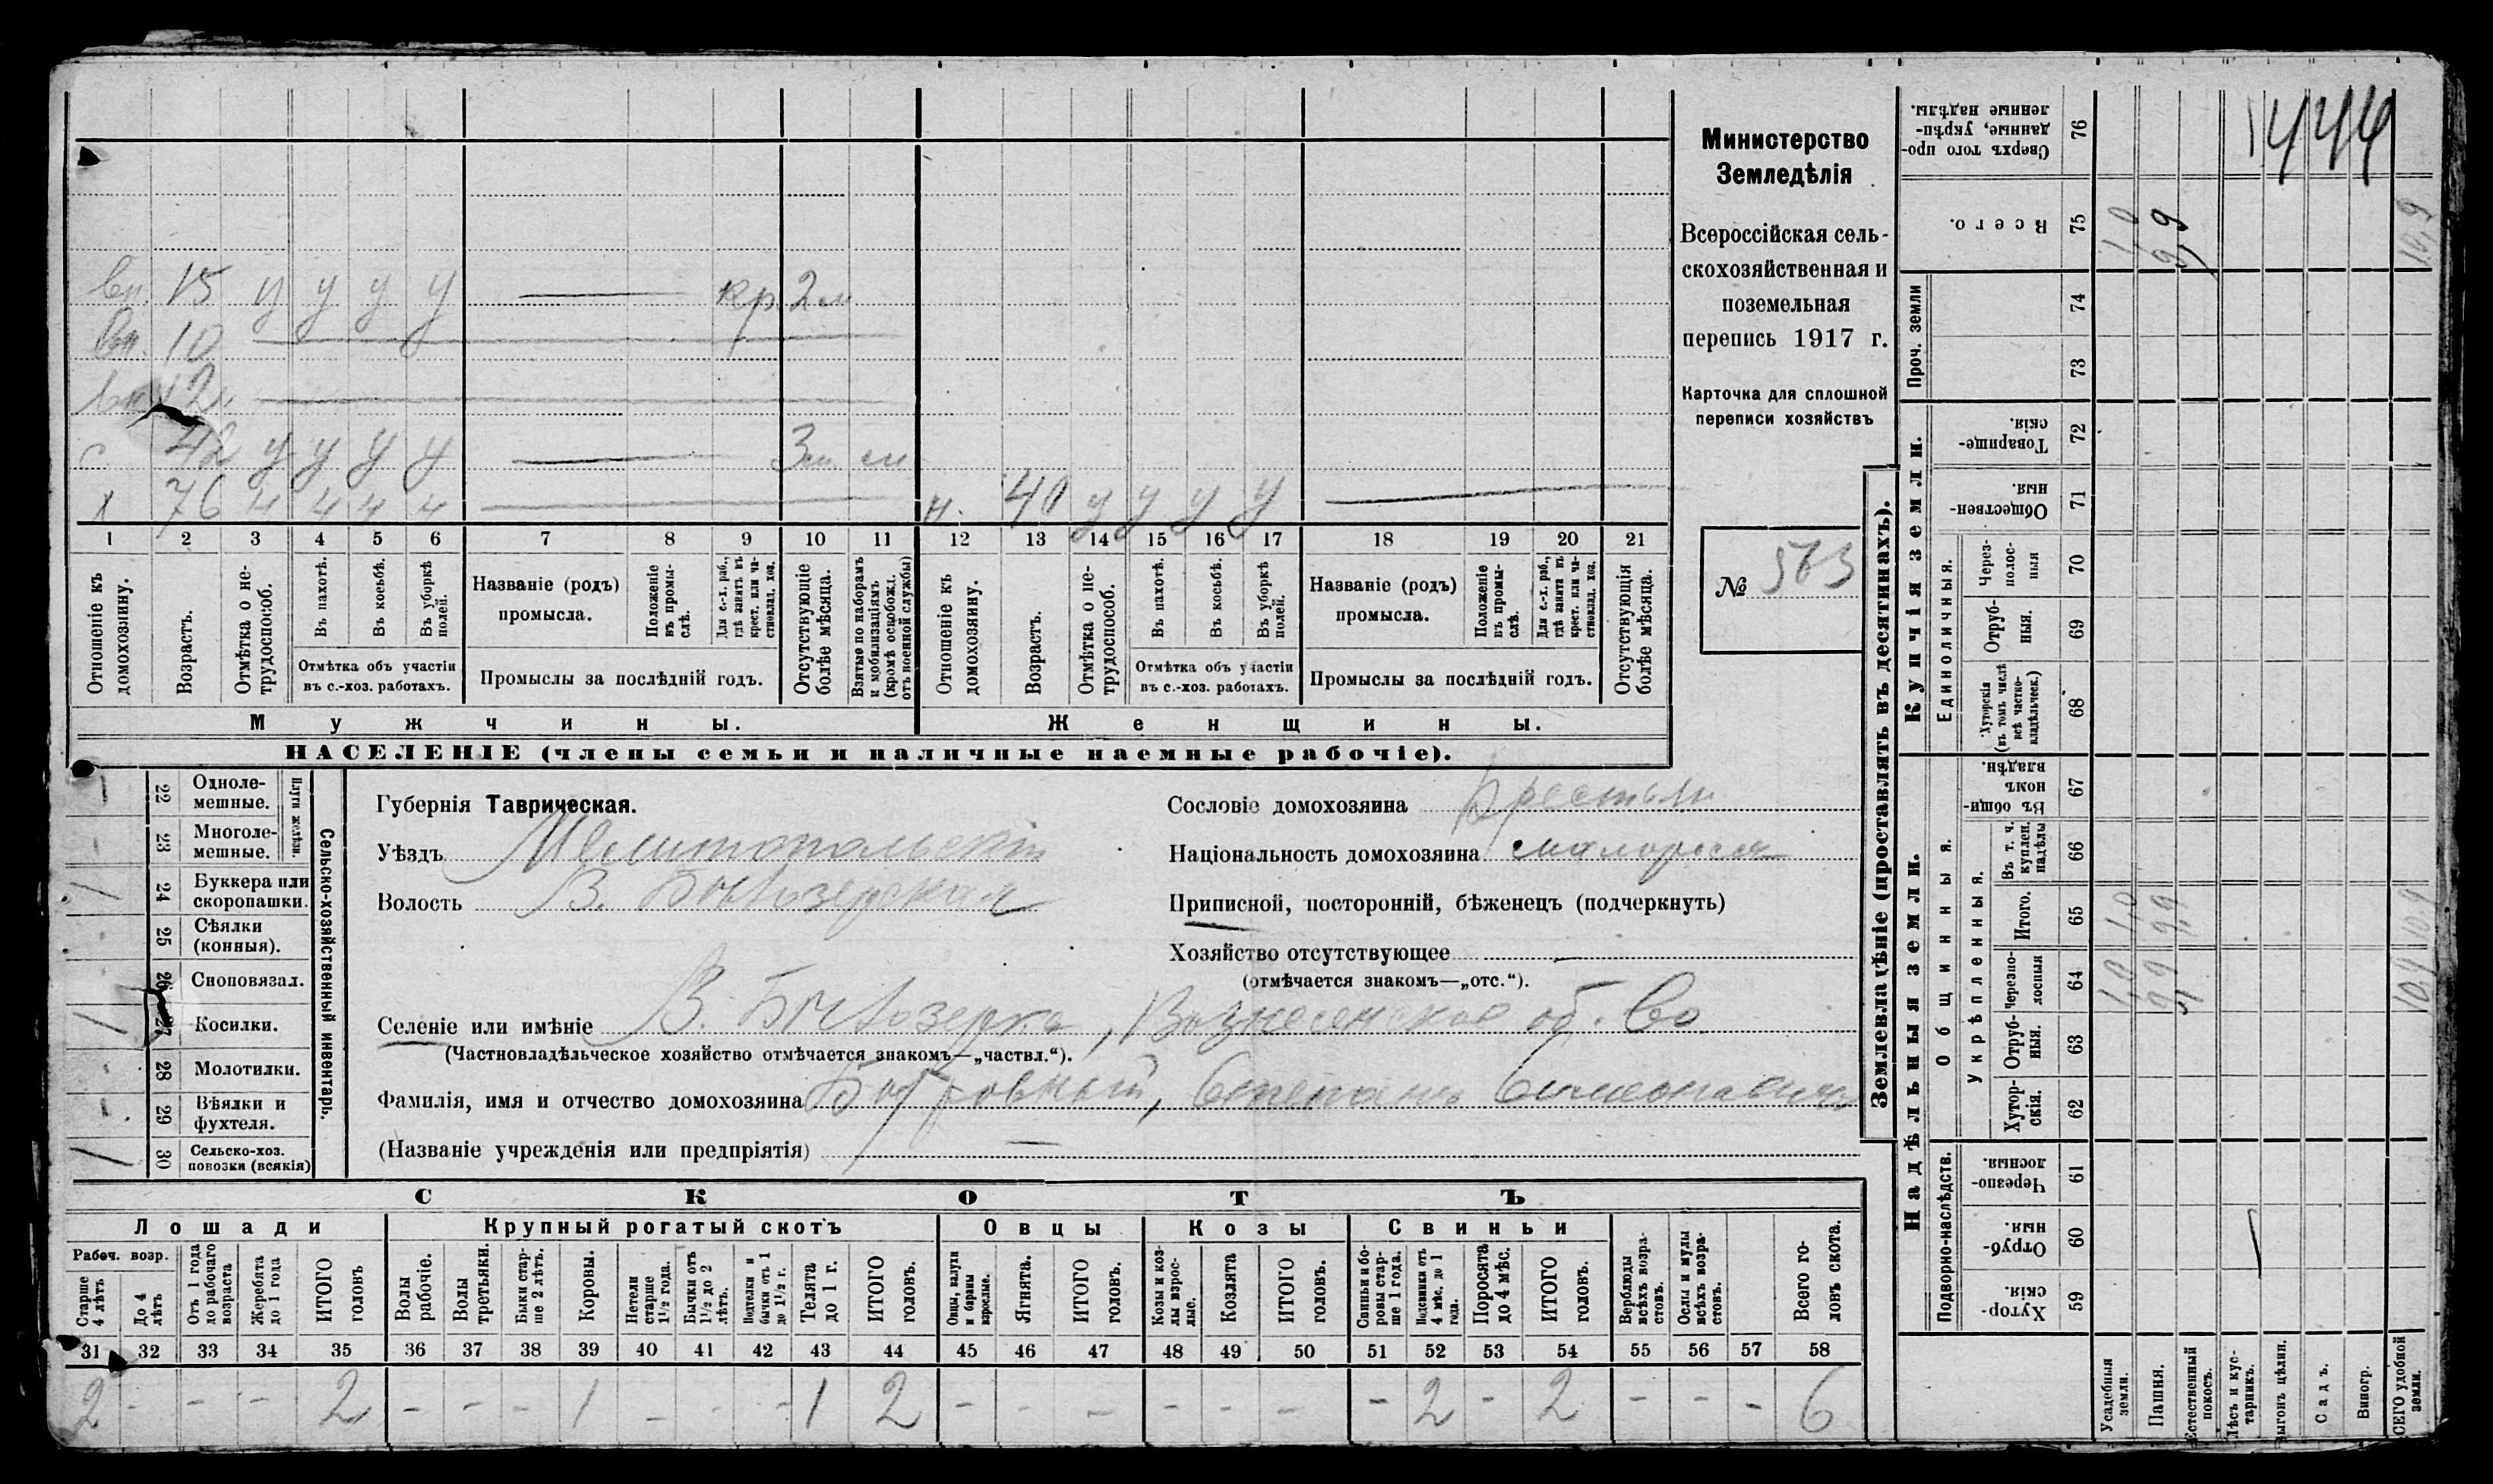 вн. 15 у у у у — кр. 2 м
вн. 10
вн. 12
с 42 у у у у — 3 м
х 76 ч ч ч ч н. 40 у у у у
1 2 3 4 5 6 7 8 9 10 11 12 13 14 15 16 17 18 19 20 21
Отношеніе къ домохозяину.
Возрастъ.
Отмѣтка о нетрудоспособ.
Въ пахотѣ.
Въ косьбѣ.
Въ уборкѣ полей.
Отмѣтка объ участіи въ с.-хоз. работахъ.
Названіе (родъ) промысла.
Положеніе въ промыслѣ.
Для с.-х. раб., гдѣ занятъ въ крест. или частновлад. хоз.
Промыслы за послѣдній годъ.
Отсутствующіе болѣе мѣсяца.
Взятые по наборамъ и мобилизаціямъ (кромѣ освобожд. отъ военной службы)
Отношеніе къ домохозяину.
Возрастъ.
Отмѣтка о нетрудоспособ.
Въ пахотѣ.
Въ косьбѣ.
Въ уборкѣ полей.
Отмѣтка объ участіи въ с.-хоз. работахъ.
Названіе (родъ) промысла.
Положеніе въ промыслѣ.
Для с.-х. раб., гдѣ занятъ въ крест. или частновлад. хоз.
Промыслы за послѣдній годъ.
Отсутствующія болѣе мѣсяца.
Мужчины.
Женщины.
НАСЕЛЕНІЕ (члены семьи и наличные наемные рабочіе).
Министерство
Земледѣлія
Всероссійская сель-
скохозяйственная и
поземельная
перепись 1917 г.
Карточка для сплошной
переписи хозяйствъ
№ 563
22 Однолемешные.
23 Многолемешные.
Плуги желѣзн.
24 Буккера или скоропашки. /
25 Сѣялки (конныя).
26 Сноповязал.
27 Косилки. /
28 Молотилки.
29 Вѣялки и фухтеля.
30 Сельско-хоз. повозки (всякія) /
Сельско-хозяйственный инвентарь.
Губернія Таврическая.
Уѣздъ Мелитопольскій
Волость В. Бѣлозерская
Сословіе домохозяина Крестьян
Національность домохозяина малоросс
Приписной, посторонній, бѣженецъ (подчеркнуть)
Хозяйство отсутствующее —
(отмѣчается знакомъ—„отс.“).
Селеніе или имѣніе В. Бѣлозерка, Вознесенское об-во
(Частновладѣльческое хозяйство отмѣчается знакомъ—„частвл.“).
Фамилія, имя и отчество домохозяина Степанъ Симеоновичъ
(Названіе учрежденія или предпріятія) —
СКОТЪ
Лошади
Крупный рогатый скотъ
Овцы
Козы
Свиньи
Рабоч. возр.
Старше 4 лѣтъ
До 4 лѣтъ
Отъ 1 года до рабочаго возраста
Жеребята до 1 года
ИТОГО головъ
Волы рабочіе.
Волы третьяки.
Быки старше 2 лѣтъ.
Коровы.
Нетели старше 1½ года.
Бычки отъ 1½ до 2 лѣтъ.
Подтелки и бычки отъ 1 до 1½ г.
Телята до 1 г.
ИТОГО головъ.
Овцы, валухи и бараны взрослые.
Ягнята.
ИТОГО головъ.
Козы и козлы взрослые.
Козлята
ИТОГО головъ.
Свиньи и боровы старше 1 года.
Подсвинки отъ 4 мѣс. до 1 года.
Поросята до 4 мѣс.
ИТОГО головъ.
Верблюды всѣхъ возрастовъ.
Ослы и мулы всѣхъ возрастовъ.
Всего головъ скота.
31 32 33 34 35 36 37 38 39 40 41 42 43 44 45 46 47 48 49 50 51 52 53 54 55 56 57 58
2 - - - 2 - - - 1 - - - 1 2 - - - - - - - 2 - 2 - - - 6
Землевладѣніе (проставлять въ десятинахъ).
Надѣльныя земли.
Купчія земли.
Проч. земли
Подворно-наслѣдств.
Общинныя.
Укрѣпленныя.
Единоличныя.
76 Сверхъ того проданные, укрѣпленные надѣлы.
75 Всего. 1,0 9,9 10,9
74
73
72 Товарищескія.
71 Общественныя.
70 Черезполосныя
69 Отрубныя.
68 Хуторскія (въ томъ числѣ всѣ частновладѣльческ.)
67 Въ общинномъ владѣн.
66 Въ т. ч. куплен. надѣлы
65 Итого. 1,0 9,9 10,9
64 Черезполосныя 1,0 9,9 10,9
63 Отрубныя.
62 Хуторскія.
61 Черезполосныя.
60 Отрубныя.
59 Хуторскія.
Усадебныя земли.
Пашня.
Естественный покосъ.
Лѣсъ и кустарникъ.
Выгонъ цѣлин.
Садъ.
Виногр.
ВСЕГО удобной земли.